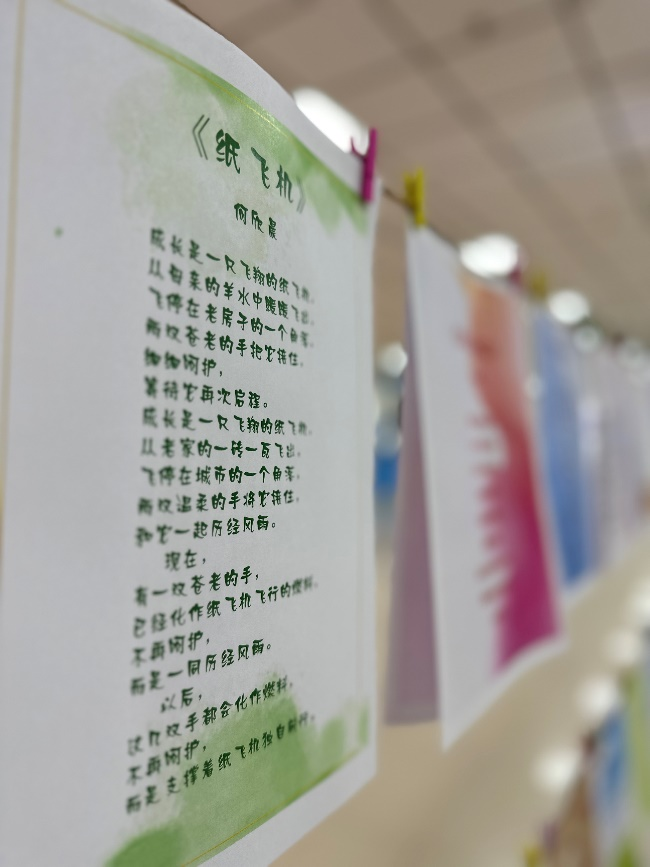 《纸飞机》
何欣晨
成长是一只飞翔的纸飞机，
从母亲的羊水中暖暖飞出，
飞停在老房子的一个角落，
两双苍老的手把它接住，
细细呵护，
等待它再次启程。
成长是一只飞翔的纸飞机，
从老家的一砖一瓦飞出，
飞停在城市的一个角落，
两双温柔的手将它接住，
和它一起历经风雨。
现在，
有一双苍老的手，
已经化作纸飞机飞行的燃料，
不再呵护，
而是一同历经风雨。
以后，
这几双手都会化作燃料，
不再呵护，
而是支撑着纸飞机独自前行。